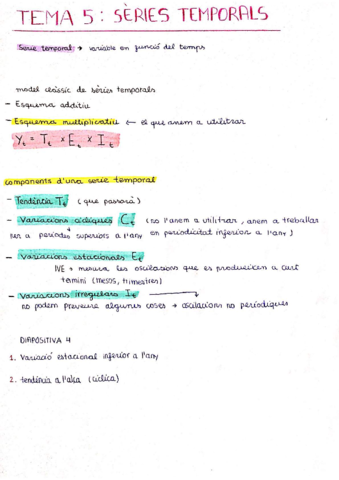 TEMA 5: SÈRIES TEMPORALS
Serie temporal: → variable en funció del temps
model clàssic de sèries temporals
- Esquema additiu
- Esquema multiplicatiu ← el que anem a utilitzar
Yt = Tt × Et × It
components d'una serie temporal
- Tendència Tt (que passarà)
- Variacions cícliques Ct (no l'anem a utilitzar, anem a treballar
en periodicitat inferior a l'any)
ler a períodes superiors a l'any
- Variacions estacionals Et
IVE = mesura les oscilacions que es produeixen a curt
termini (mesos, trimestres)
- Variacions irregulars It
no podem preveure algunes coses → oscilacions no periòdiques
DIAPOSITIVA 4
1. Variació estacional inferior a l'any
2. tendència a l'alça (cíclica)